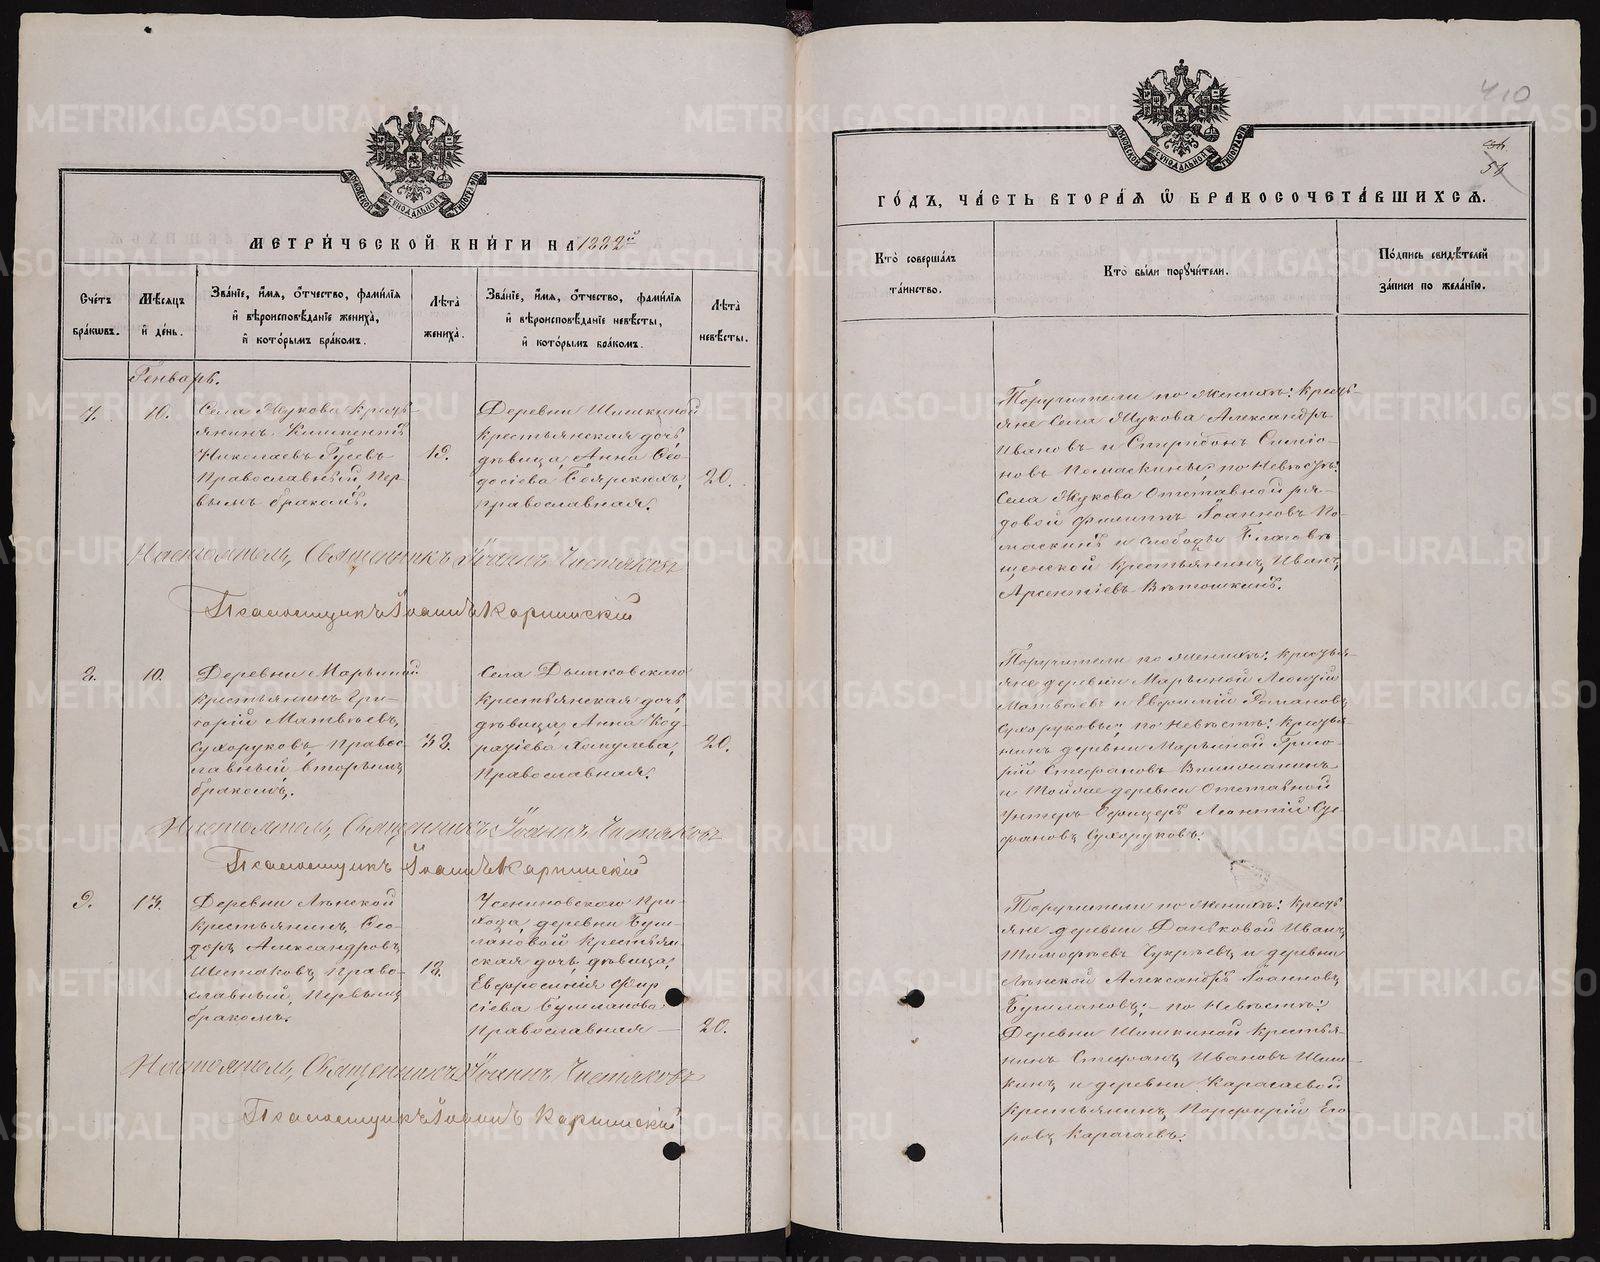 МЕТРИ́ЧЕСКОЙ КНИ́ГИ НА 1882й
Сче́тъ бра́кѡвъ.
Мѣ́сяцъ и҆ де́нь.
Зва́нїе, и҆́мя, ѻ҆́тчество, фами́лїя и҆ вѣроисповѣ́данїе жениха̀, и҆ кото́рымъ бра́комъ.
Лѣ́та жениха̀.
Зва́нїе, и҆́мя, ѻ҆́тчество, фами́лїя и҆ вѣроисповѣ́данїе невѣ́сты, и҆ кото́рымъ бра́комъ.
Лѣ́та невѣ́сты.
Генварь.
7.
10.
Села Жукова кресть-
янинъ
Николаевъ Гусевъ
Православный, Пер-
вымъ бракомъ.
19.
Деревни Шишкиной
крестьянская дочь
дѣвица, Анна Ѳео-
досіева Боярскихъ,
православная.
20.
Настоятель, Священникъ Іоаннъ Чистяковъ
Псаломщикъ Іоаннъ Карпинскій
8.
10.
Деревни Марьиной
крестьянинъ Гри-
горій Матвѣевъ
Сухоруковъ, Правос-
лавный, вторымъ
бракомъ.
33.
Села Дымковскаго
крестьянская дочь
дѣвица, Анна Код-
ратіева
Православная.
20.
Настоятель, Священникъ Іоаннъ Чистяковъ
Псаломщикъ Іоаннъ Карпинскій
9.
13.
Деревни Лѣнской
крестьянинъ, Ѳео-
доръ Александровъ
Шестаковъ, Право-
славный, Первымъ
бракомъ.
18.
Усениновскаго При-
хода, деревни Буш-
лановой крестьян-
ская дочь, дѣвица,
Евфросинія Фир-
сіева Бушланова
Православная
20.
Настоятель, Священникъ Іоаннъ Чистяковъ
Псаломщикъ Іоаннъ Карпинскій
410
54
ГО́ДЪ, ЧА́СТЬ ВТОРА́Я Ѽ БРАКОСОЧЕТА́ВШИХСЯ.
Кто̀ соверша́лъ та́инство.
Кто̀ бы́ли поручи́тели.
По́дпись свидѣ́телей за́писи по жела́нїю.
Поручители по женихѣ: кресть-
яне Села Жукова Александръ
Ивановъ и Спиридонъ Симіо-
новъ Помаскины; по Невѣстѣ:
Села Жукова Отставной ря-
довой Филиппъ Іоанновъ По-
маскинъ и слободы Благовѣ-
щенской Крестьянинъ Иванъ
Арсентіевъ Вѣтошкинъ.
Поручители по женихѣ: кресть-
яне деревни Марьиной Леонтій
Матвѣевъ и Евфимій Романовъ
Сухоруковы; по Невѣстѣ: Кресть-
янинъ деревни Марьиной Григо-
рій Стефановъ
и тойже деревни Отставной
Унтеръ Офицеръ Леонтій Сте-
фановъ Сухоруковъ.
Поручители по женихѣ: кресть-
яне деревни Даньковой Иванъ
Тимофѣевъ Чукрѣевъ и деревни
Лѣнской Александръ Іоанновъ
Бушлановъ; – по Невѣстѣ:
Деревни Шишкиной Крестья-
нинъ Стефанъ Ивановъ Шиш-
кинъ и деревни Карагаевой
Крестьянинъ Порфирій Его-
ровъ Карагаевъ.
METRIKI.GASO-URAL.RU